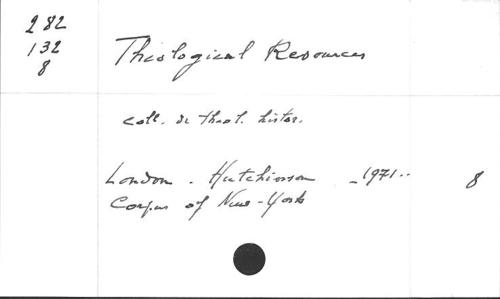 282
132
8
Theological Resources
coll. de theol. histor.
London - Hutchinson - 1971.. 8
Corpus of New-York